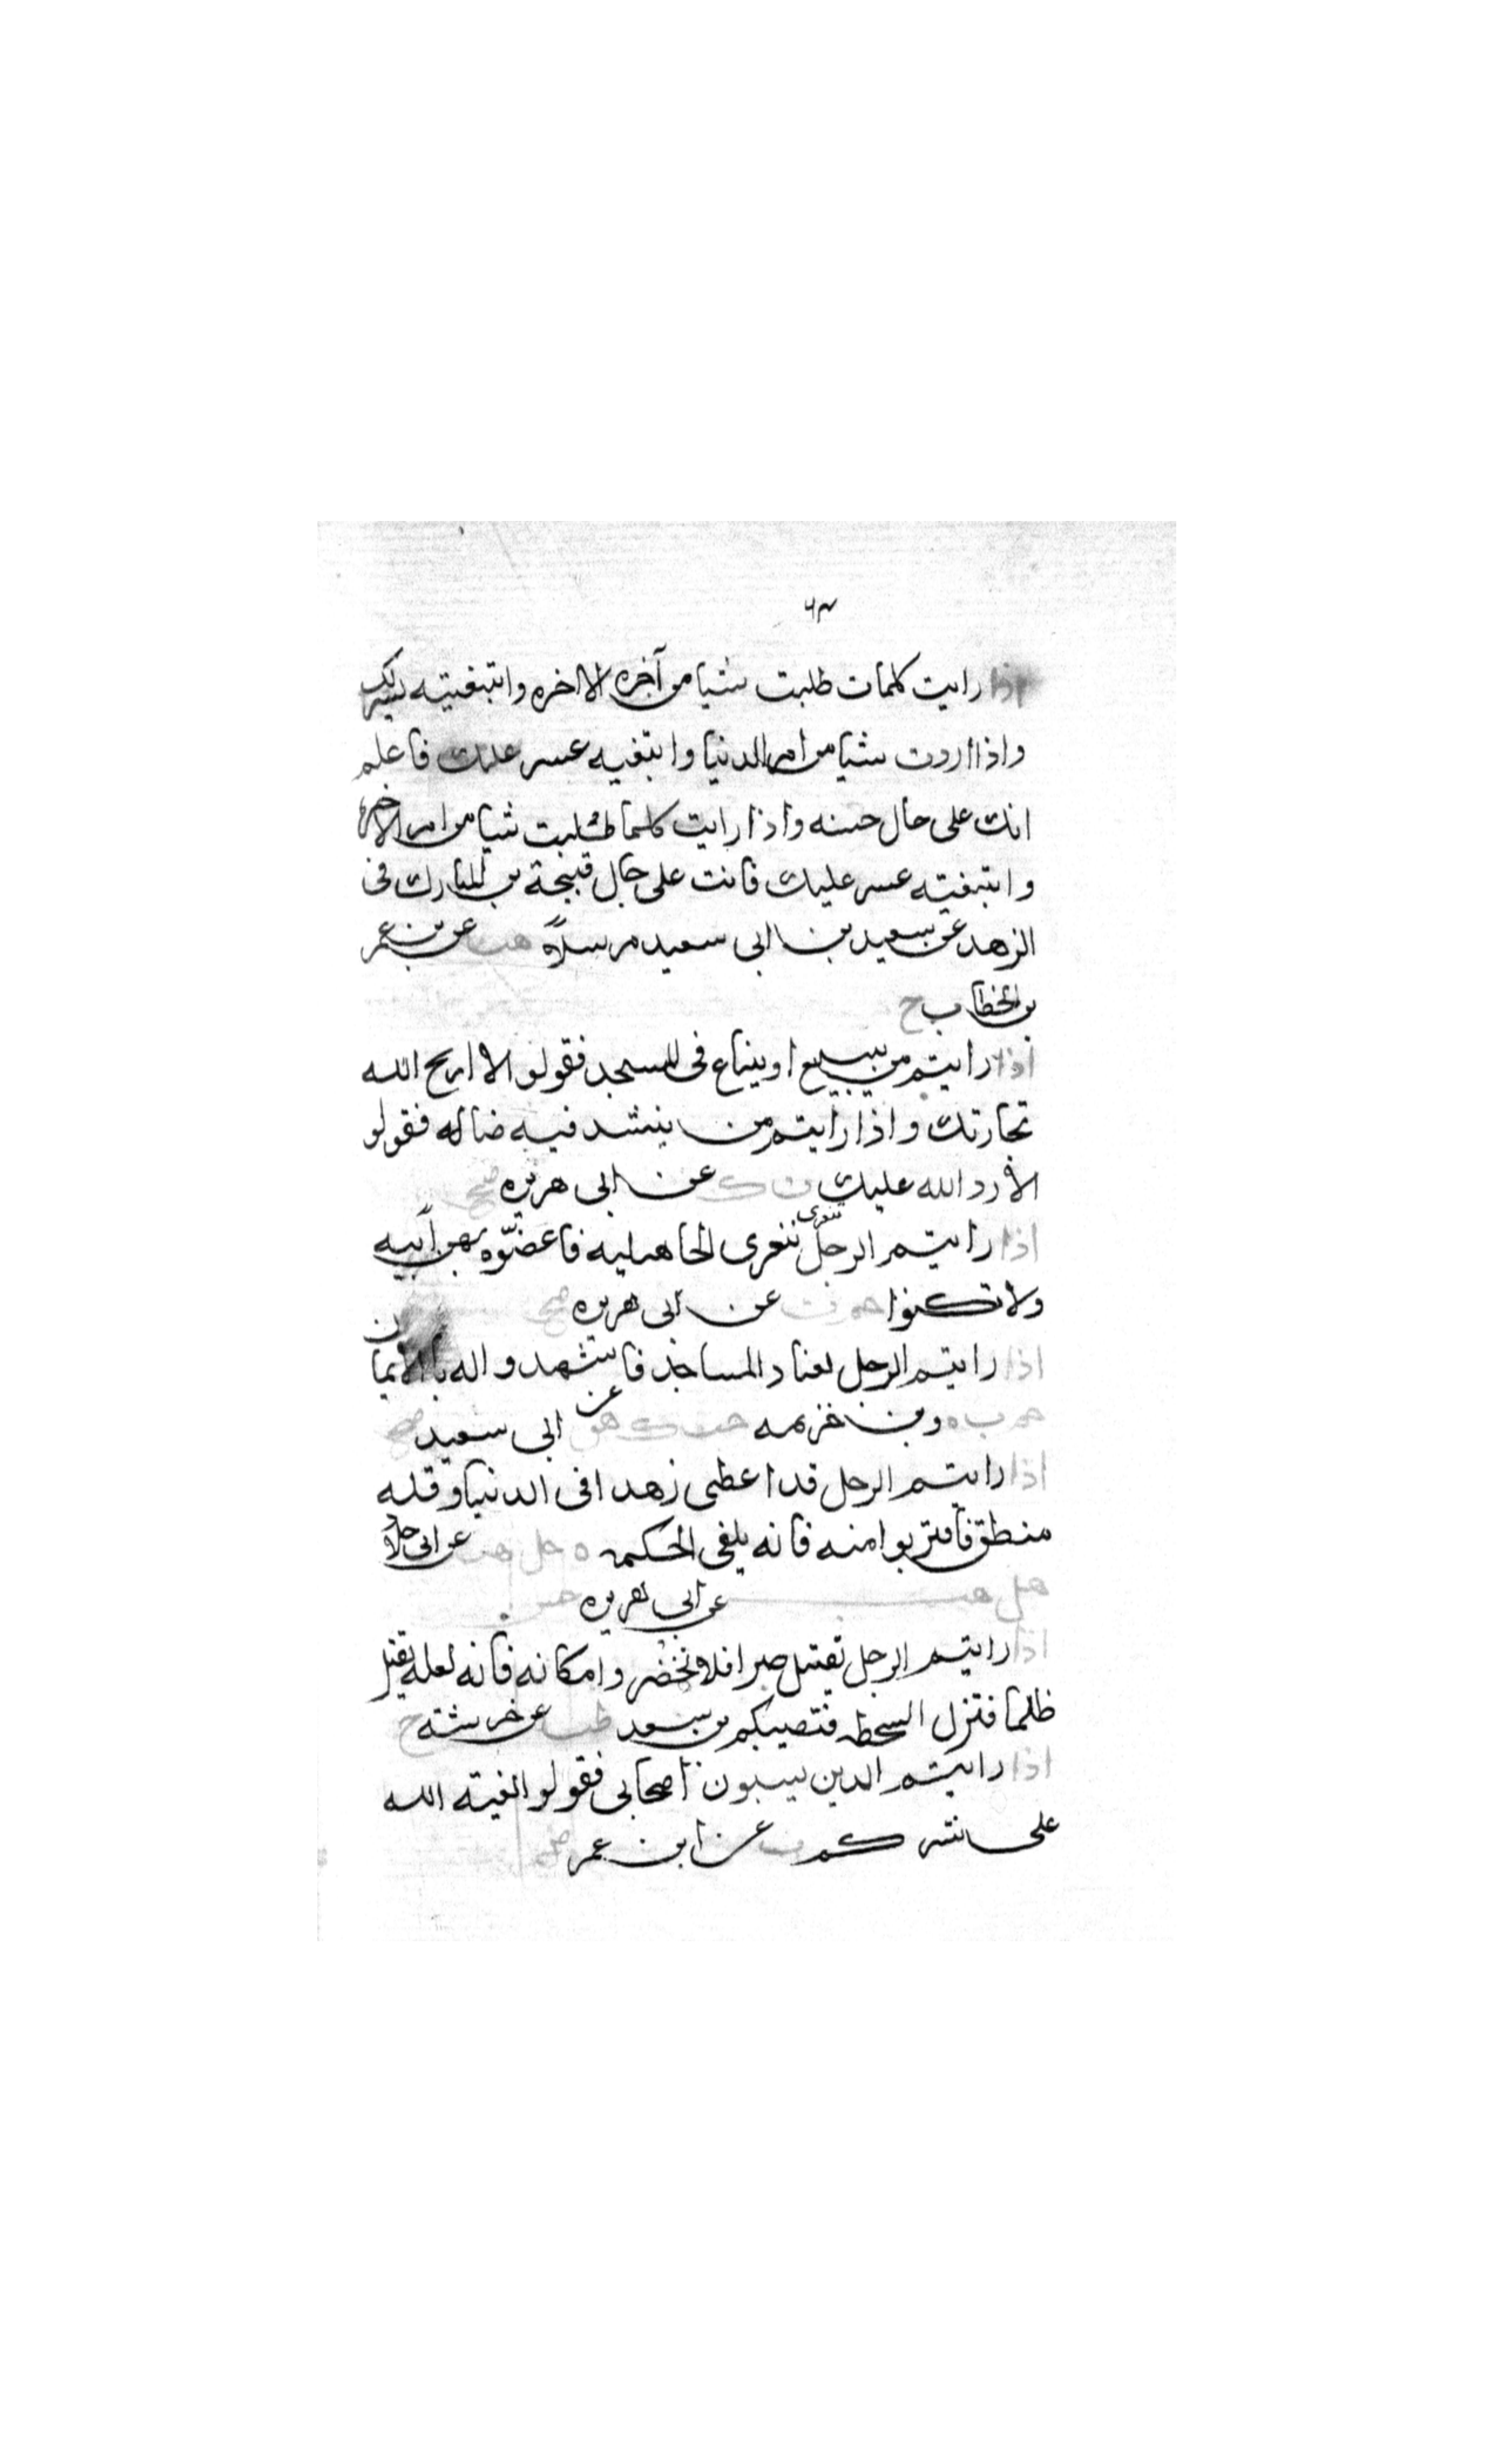 ٦٣
اذا رايت كلمات طلبت شيا من آخره الاخره وابتغيته يسر لك
واذا اردت شيا من امر الدنيا وابتغيه عسر عليك فاعلم
انك على حال حسنه واذا رايت كلما طلبت شيا من امر الاخره
وابتغيته عسر عليك فانت على حال قبيحة بن المبارك فى
الزهد عن سعيد بن ابى سعيد مرسلاً هب عن بن عمر
بن الخطاب ح
اذا رايتم من يبيع او يبتاع فى المسجد فقولو الا اربح الله
تجارتك واذا رايتم من ينشد فيه ضاله فقولو
الا رد الله عليك ت ك عن ابى هريره صح
اذا رايتم الرجل تعزى الجاهليه فاعضّوه بهن أبيه
ولا تكنوا حم ت عن ابى هريره صح
اذا رايتم الرجل يعتاد المساجد فاشهدو اله بالايمان
حم ت ه وبن خزيمه حب ك هق عن ابى سعيد صح
اذا رايتم الرجل قد اعطى زهدا فى الدنيا وقله
منطق فاقتربوا منه فانه يلقى الحكمه ه حل هب عن ابى خلاد
حل هب عن ابى هريره
اذا رايتم الرجل يقتل صبرا فلا تحضر وامكانه فانه لعله يقتل
ظلما فتنزل السخطه فتصيبكم بن سعد طب عن خرشه ح
اذا رايتم الدين يسبون اصحابى فقولو العنة الله
على شركم ت عن ابن عمر